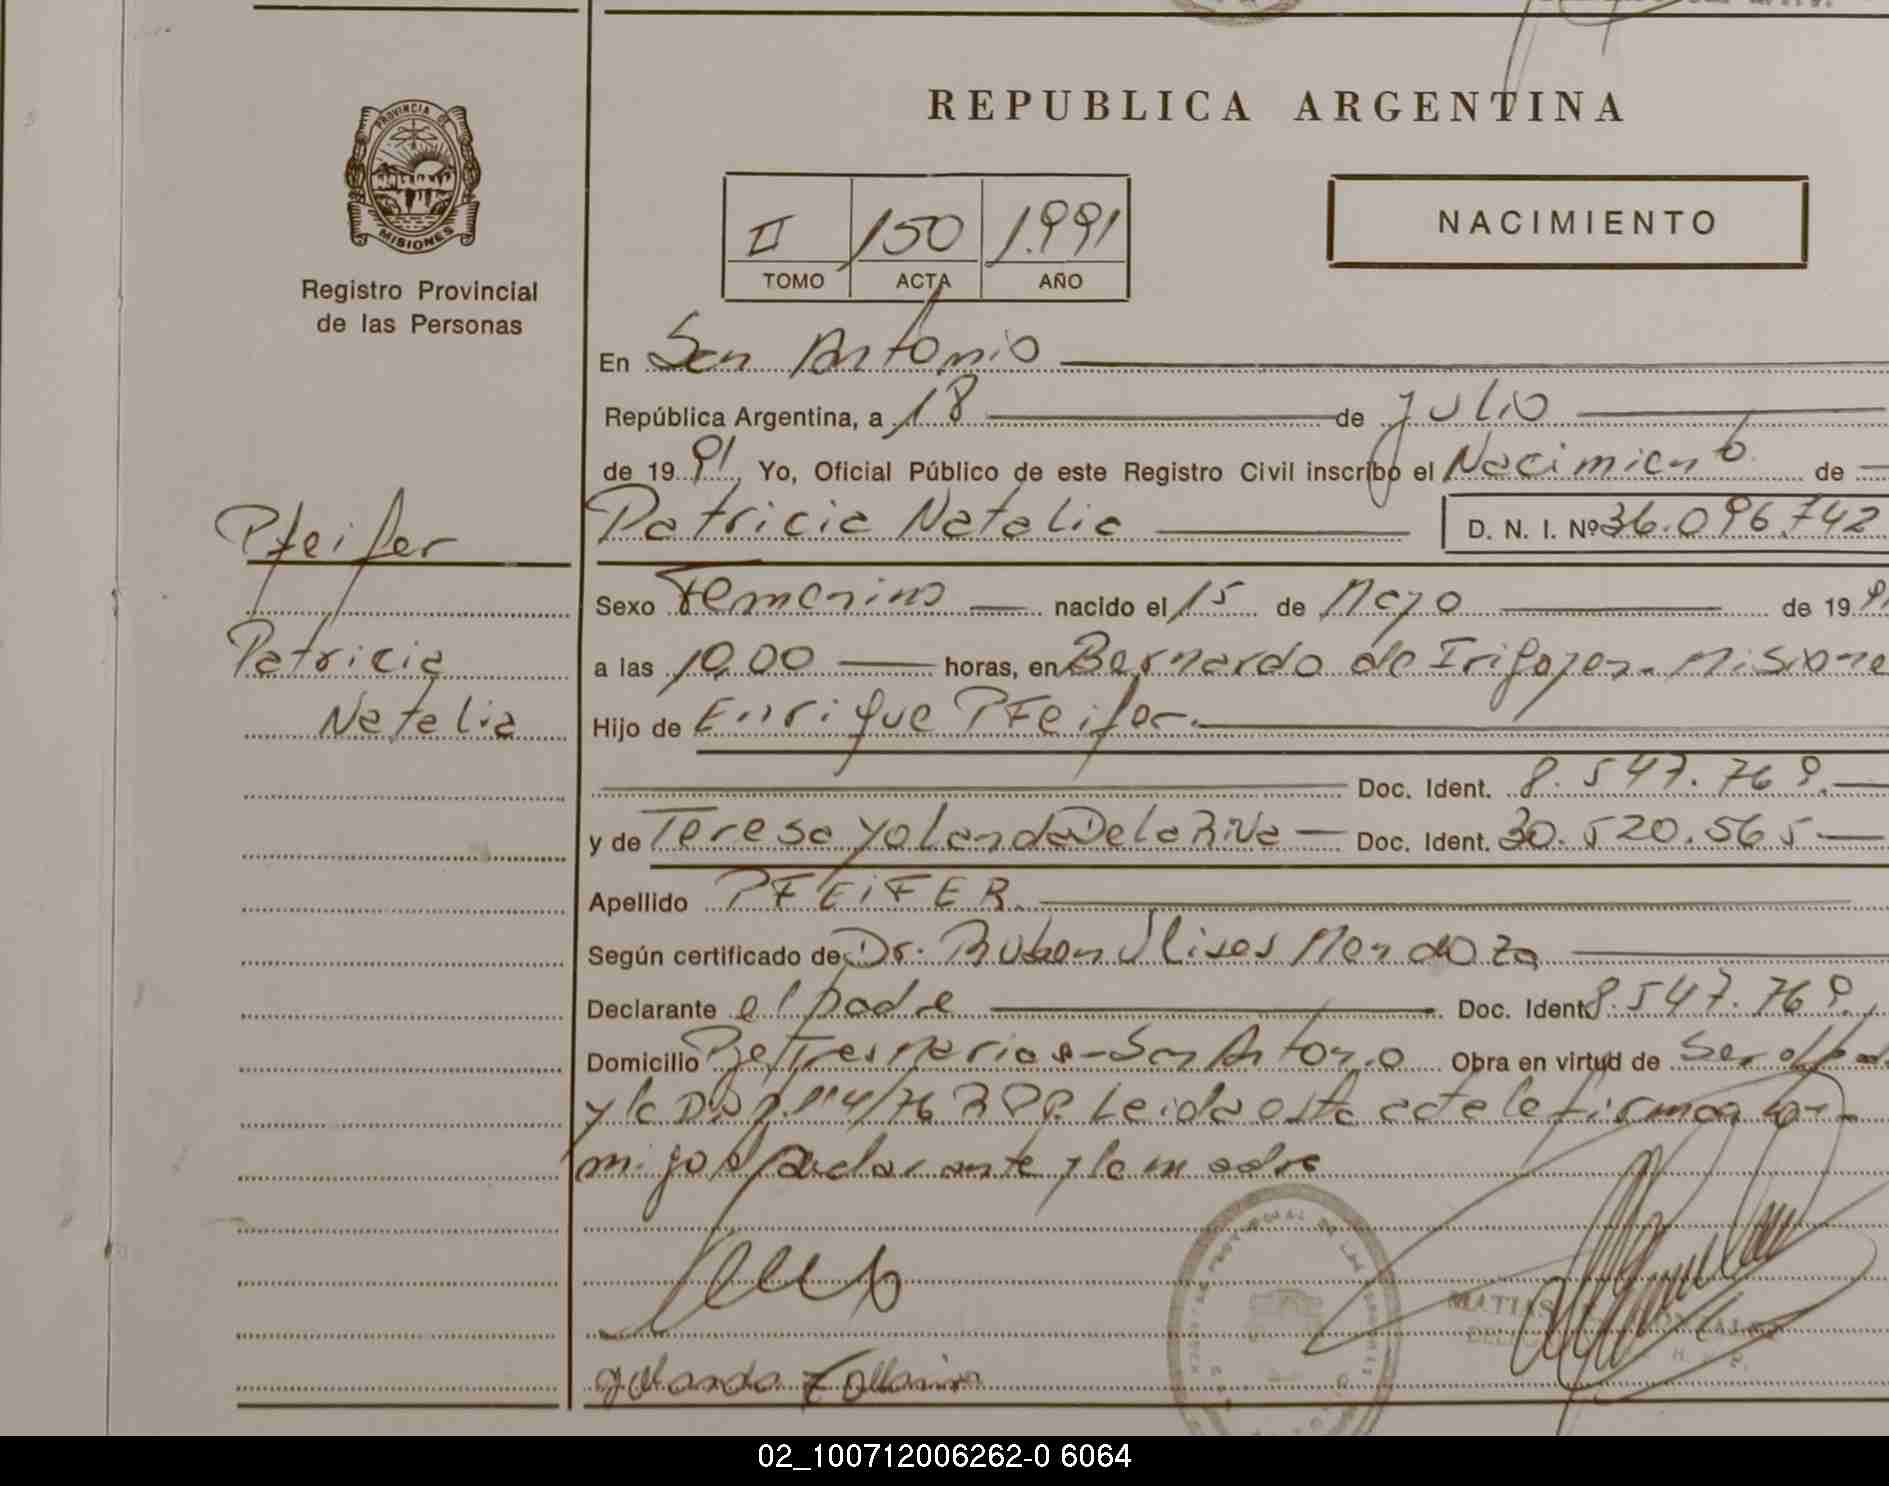 PROVINCIA DE
MISIONES
Registro Provincial
de las Personas
REPUBLICA ARGENTINA
II 150 1.991
TOMO ACTA AÑO
NACIMIENTO
En San Antonio
República Argentina, a 18 de Julio
de 1991, Yo, Oficial Público de este Registro Civil inscribo el Nacimiento de
Pfeifer
Patricia Natalia D. N. I. Nº 36.096.742
Sexo Femenino nacido el 15 de Mayo de 1991
Patricia
a las 10,00 horas, en Bernardo de Irigoyen - Misione
Natalia
Hijo de Enrique Pfeifer.
Doc. Ident. 8.547.769.
y de Teresa Yolanda De la Riva Doc. Ident. 30.520.565
Apellido PFEiFER.
Según certificado de Dr. Ruben Ulises Mendoza
Declarante el padre Doc. Ident. 8.547.769.
Domicilio Pje Tres Marias - San Antonio Obra en virtud de Ser el Pad
y la Disp. 114/76 R.P.P. Leida esta acta la firman con
migo el declarante y la madre
MATIAS GONZALEZ
02_100712006262-0 6064